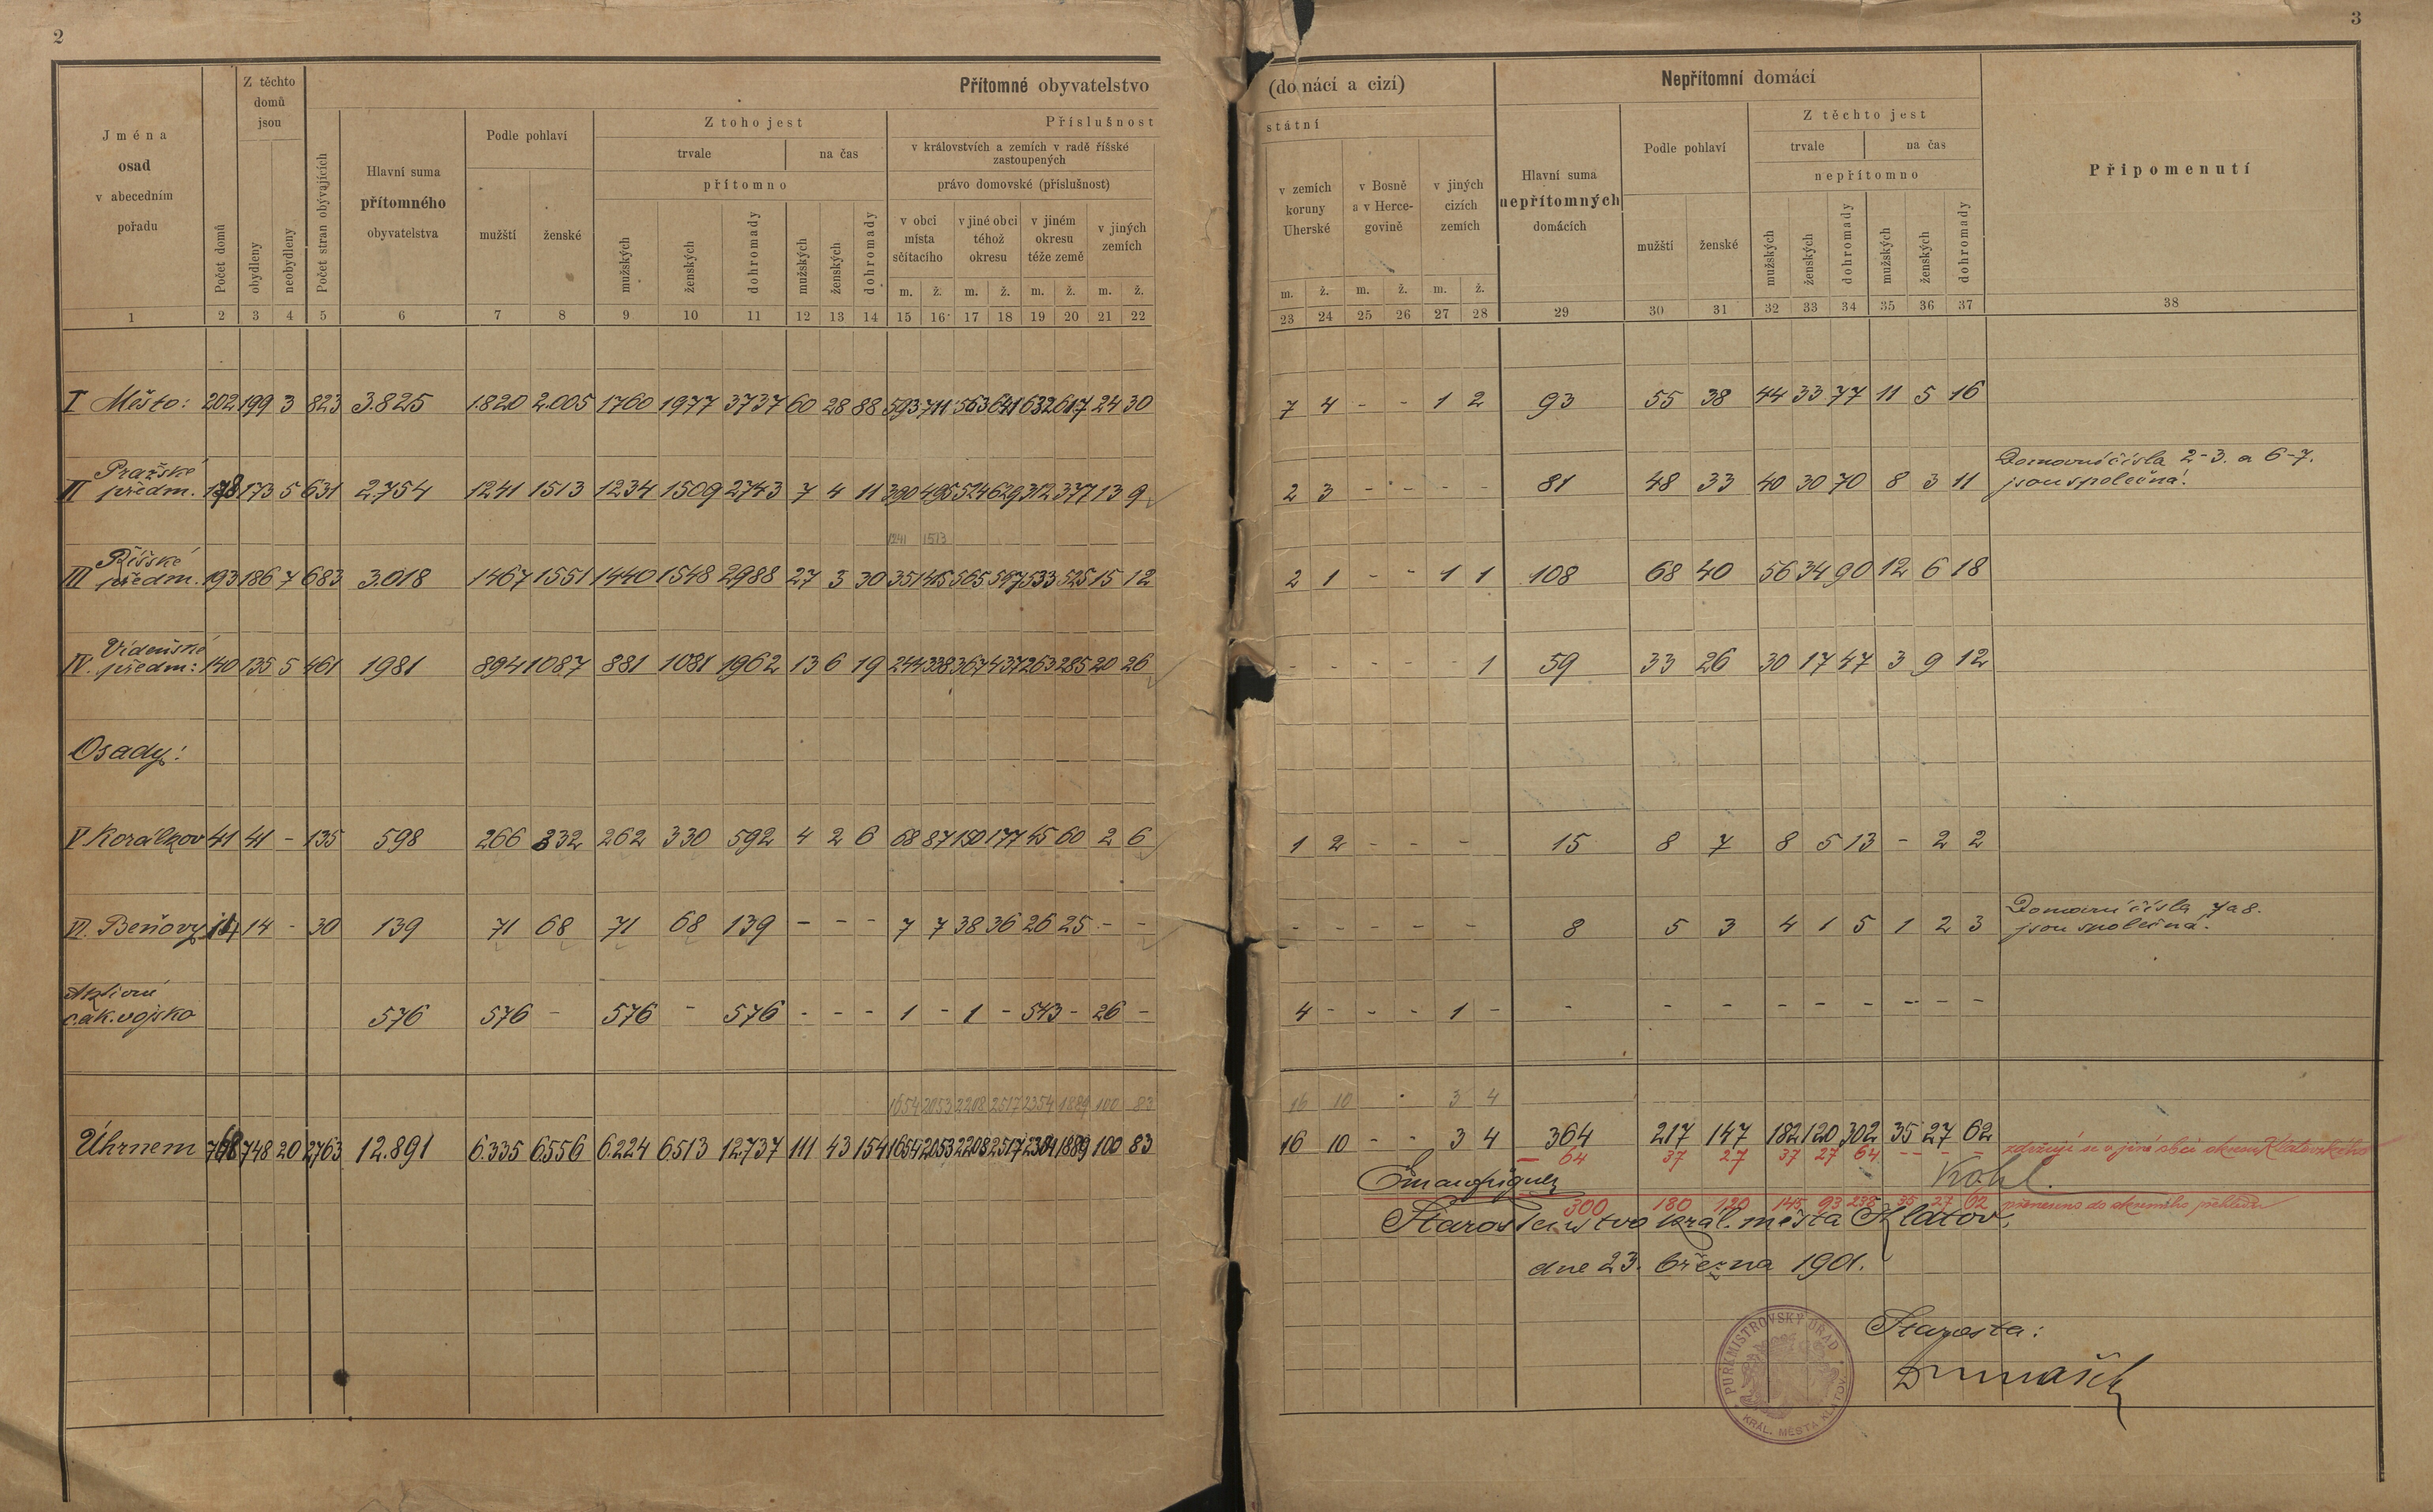 2
3
Jména
osad
v abecedním
pořadu
Počet domů
Z těchto
domů
jsou
obydleny
neobydleny
Počet stran obývajících
Přítomné obyvatelstvo
(domácí a cizí)
Hlavní suma
přítomného
obyvatelstva
Podle pohlaví
mužští ženské
Z toho jest
trvale na čas
přítomno
mužských ženských dohromady mužských ženských dohromady
Příslušnost
státní
v královstvích a zemích v radě říšské
zastoupených
právo domovské (příslušnost)
v obci
místa
sčítacího
v jiné obci
téhož
okresu
v jiném
okresu
téže země
v jiných
zemích
m. ž. m. ž. m. ž. m. ž.
v zemích
koruny
Uherské
v Bosně
a v Herce-
govině
v jiných
cizích
zemích
m. ž. m. ž. m. ž.
Nepřítomní domácí
Hlavní suma
nepřítomných
domácích
Podle pohlaví
mužští ženské
Z těchto jest
trvale na čas
nepřítomno
mužských ženských dohromady mužských ženských dohromady
Připomenutí
1 2 3 4 5 6 7 8 9 10 11 12 13 14 15 16 17 18 19 20 21 22 23 24 25 26 27 28 29 30 31 32 33 34 35 36 37 38
I Město: 202 199 3 823 3.825 1.820 2.005 1760 1977 3737 60 28 88 593 711 563 641 632 617 24 30 7 4 - - 1 2 93 55 38 44 33 77 11 5 16
II Pražské předm. 178 173 5 631 2.754 1241 1513 1234 1509 2743 7 4 11 390 495 524 629 312 377 13 9 2 3 - - - - 81 48 33 40 30 70 8 3 11 Domovní čísla 2-3. a 6-7.
jsou společná!
1241 1513
III Říšské předm. 193 186 7 683 3.018 1467 1551 1440 1548 2988 27 3 30 351 415 565 597 533 525 15 12 2 1 - - 1 1 108 68 40 56 34 90 12 6 18
IV. Vídeňské předm: 140 135 5 461 1981 894 1087 881 1081 1962 13 6 19 244 338 367 437 263 285 20 26 - - - - - 1 59 33 26 30 17 47 3 9 12
Osady:
V Korálkov 41 41 - 135 598 266 332 262 330 592 4 2 6 68 87 150 177 45 60 2 6 1 2 - - - 15 8 7 8 5 13 - 2 2
VI. Beňovy 14 14 - 30 139 71 68 71 68 139 - - - 7 7 38 36 26 25 - - - - - - - - 8 5 3 4 1 5 1 2 3 Domovní čísla 7 a 8.
jsou společná.
Aktivní
c. a k. vojsko 576 576 - 576 - 576 - - - 1 - 1 - 543 - 26 - 4 - - - 1 - - - - - - - - - -
1654 2053 2208 2517 2354 1889 100 83 16 10 - 3 4
Úhrnem 768 748 20 2763 12.891 6.335 6556 6.224 6.513 12.737 111 43 154 1654 2053 2208 2517 2354 1889 100 83 16 10 - - 3 4 364 217 147 182 120 302 35 27 62
- 64 37 27 37 27 64 - - - zdržují se v jiné obci okresu Klatovského
Kohl.
300 180 120 145 93 238 35 27 62 přeneseno do okresního přehledu
Starostenstvo král. města Klatov,
dne 23. března 1901.
Starosta:
PURKMISTROVSKÝ ÚŘAD
KRÁL. MĚSTA KLATOV